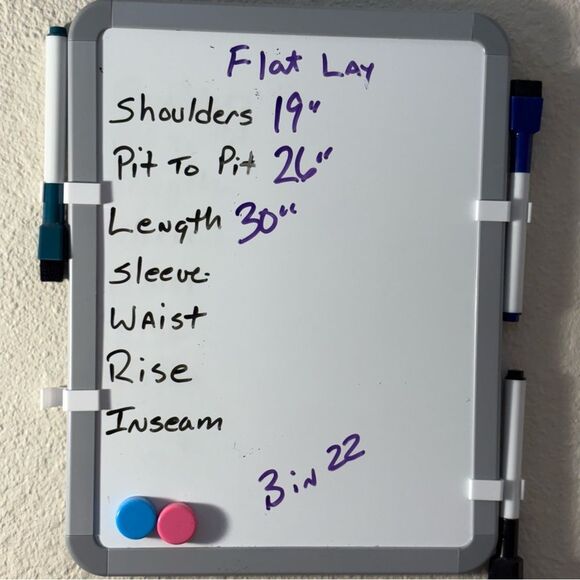 Flat Lay
Shoulders 19"
Pit To Pit 26"
Length 30"
Sleeve
Waist
Rise
Inseam
3 in 22